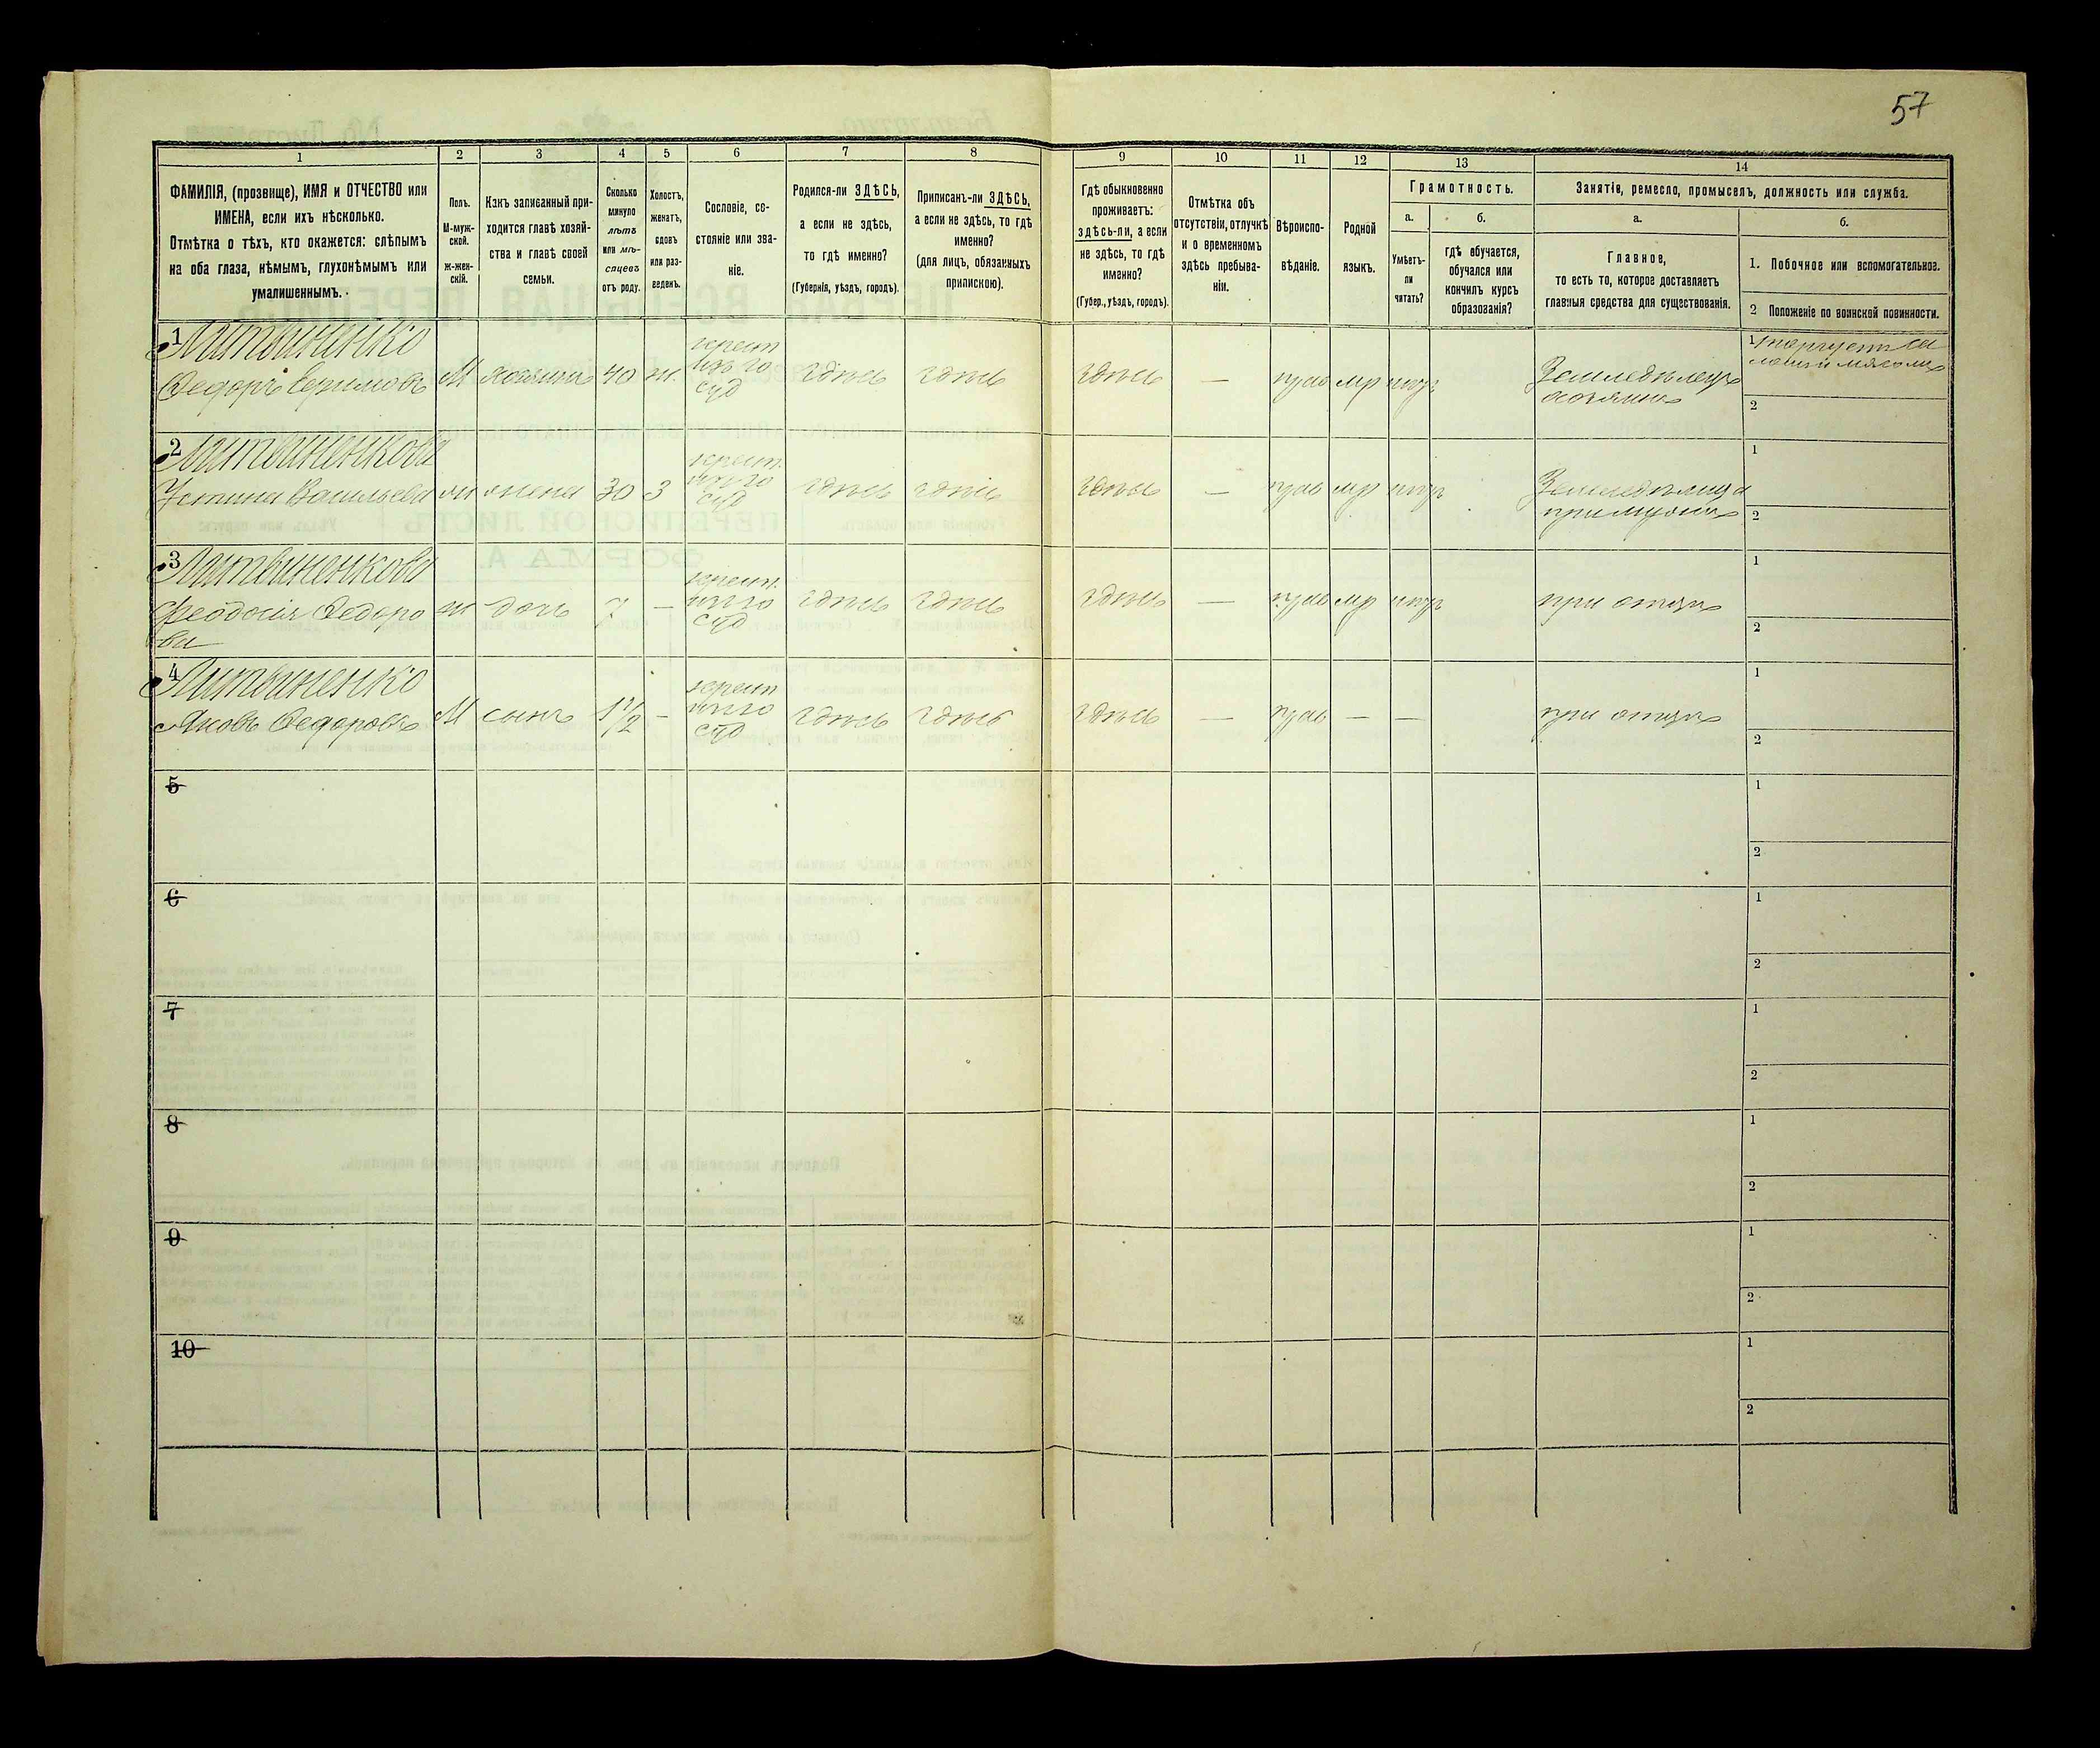 57
1 2 3 4 5 6 7 8 9 10 11 12 13 14
ФАМИЛІЯ, (прозвище), ИМЯ и ОТЧЕСТВО или
ИМЕНА, если ихъ нѣсколько.
Отмѣтка о тѣхъ, кто окажется: слѣпымъ
на оба глаза, нѣмымъ, глухонѣмымъ или
умалишеннымъ.
Полъ.
М-муж-
ской.
Ж-жен-
скій.
Какъ записанный при-
ходится главѣ хозяй-
ства и главѣ своей
семьи.
Сколько
минуло
лѣтъ
или мѣ-
сяцевъ
отъ роду.
Холостъ,
женатъ,
вдовъ
или раз-
веденъ.
Сословіе, со-
стояніе или зва-
ніе.
Родился-ли ЗДѢСЬ,
а если не здѣсь,
то гдѣ именно?
(Губернія, уѣздъ, городъ).
Приписанъ-ли ЗДѢСЬ,
а если не здѣсь, то гдѣ
именно?
(для лицъ, обязанныхъ
припискою).
Гдѣ обыкновенно
проживаетъ:
здѣсь-ли, а если
не здѣсь, то гдѣ
именно?
(Губер., уѣздъ, городъ).
Отмѣтка объ
отсутствіи, отлучкѣ
и о временномъ
здѣсь пребыва-
ніи.
Вѣроиспо-
вѣданіе.
Родной
языкъ.
Грамотность.
а.
Умѣетъ-
ли
читать?
б.
гдѣ обучается,
обучался или
кончилъ курсъ
образованія?
Занятіе, ремесло, промыселъ, должность или служба.
а.
Главное,
то есть то, которое доставляетъ
главныя средства для существованія.
б.
1. Побочное или вспомогательное.
2 Положеніе по воинской повинности.
1 Литвиненко
Федоръ Ефимовъ М хозяинъ 40 ж. здѣсь здѣсь здѣсь — прав мр нтъ Земледѣлецъ
хозяинъ
1
2
2 Литвиненкова
Устина Васильева ж жена 30 з здѣсь здѣсь здѣсь — прав мр нтъ
1
2
3 Литвиненкова
Феодосія Федоро
ва
ж дочь 7 — здѣсь здѣсь здѣсь — прав мр нтъ при отцѣ
1
2
4 Литвиненко
Яковъ Федоровъ М сынъ — здѣсь здѣсь здѣсь — прав — — при отцѣ
1
2
5
1
2
6
1
2
7
1
2
8
1
2
9
1
2
10
1
2